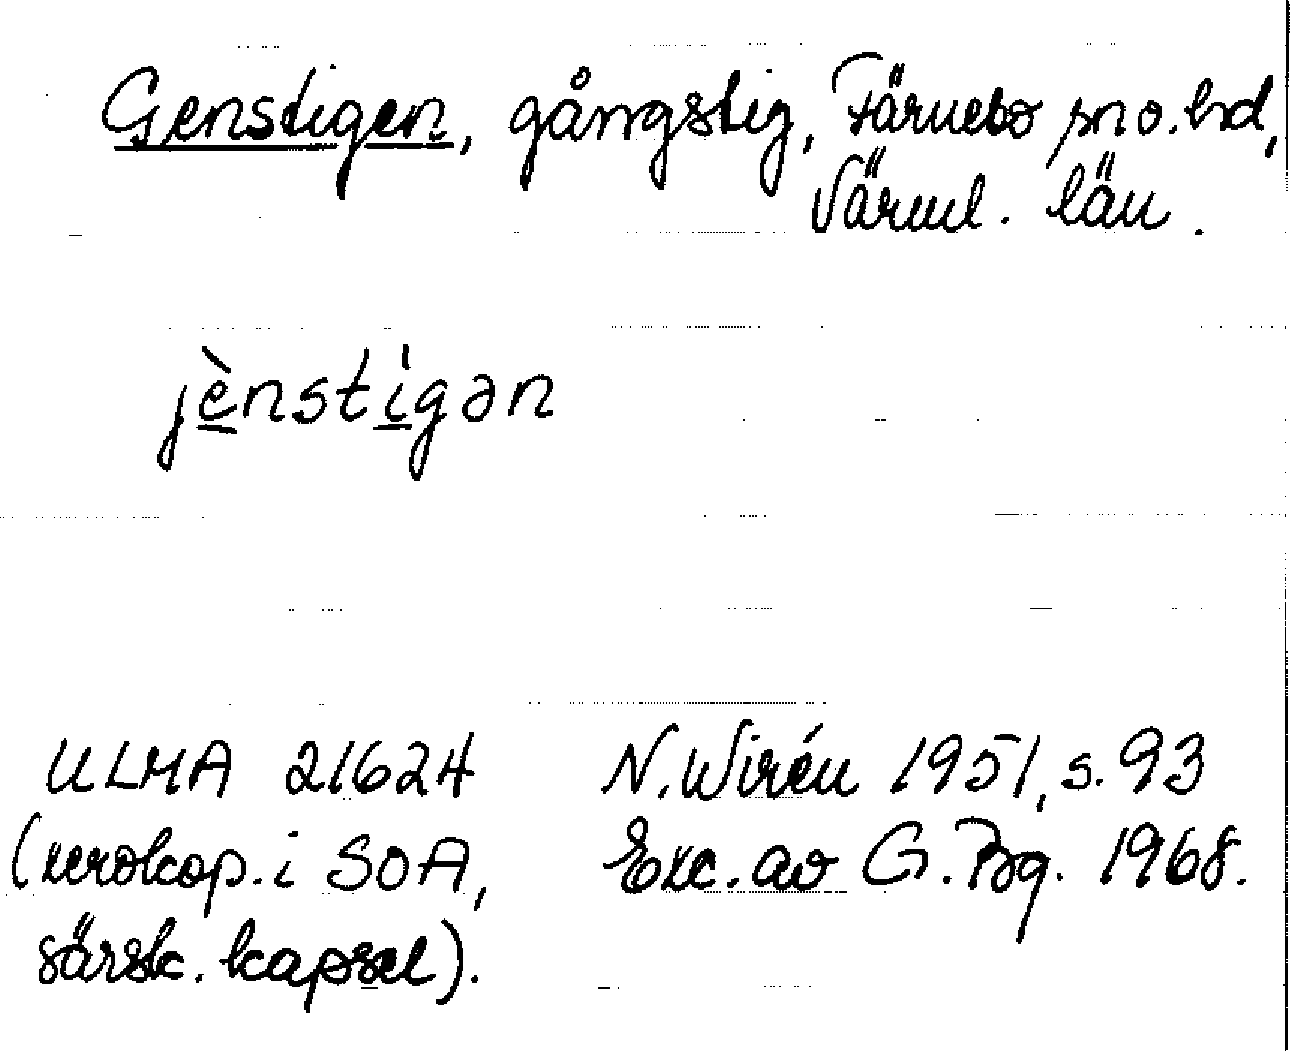 Genstigen, gångstig, Färnebo sn o. hd,
Värml. län.
jènstigən
ULMA 21624
(xerokop. i SOA,
särsk. kapsel).
N. Wirén 1951, s. 93
Exc. av G. Bg. 1968.